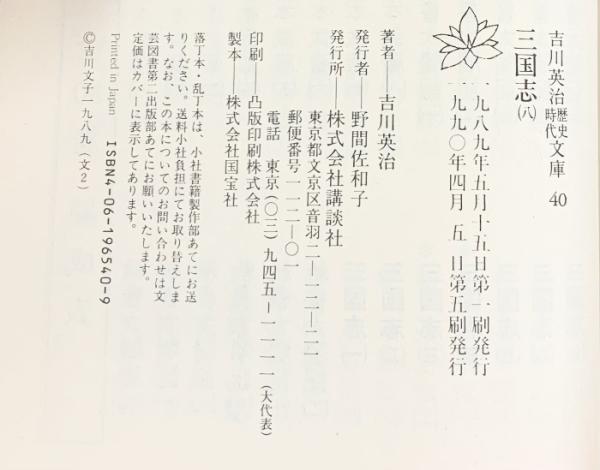 吉川英治歴史時代文庫 40
三国志(八)
一九八九年五月十五日第一刷発行
一九九〇年四月 五 日第五刷発行
著者―吉川英治
発行者―野間佐和子
発行所―株式会社講談社
東京都文京区音羽二―一二―二一
郵便番号一一二―〇一
電話 東京(〇三)九四五―一一一一(大代表)
印刷―凸版印刷株式会社
製本―株式会社国宝社
落丁本・乱丁本は、小社書籍製作部あてにお送
りください。送料小社負担にてお取り替えしま
す。なお、この本についてのお問い合わせは文
芸図書第二出版部あてにお願いいたします。
定価はカバーに表示してあります。
Printed in Japan ISBN4-06-196540-9
©吉川文子一九八九(文2)